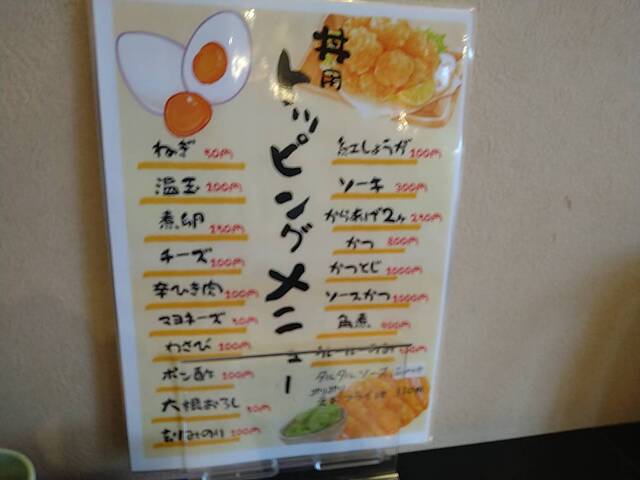 丼用
トッピングメニュー
紅しょうが 100円
ソーキ 300円
からあげ2ヶ 250円
かつ 800円
かつとじ 1000円
ソースかつ 1000円
角煮
タルタルソース
ねぎ 50円
温玉 100円
煮卵 150円
チーズ 100円
辛ひき肉 200円
マヨネーズ 50円
わさび 100円
ポン酢 100円
大根おろし 50円
むしみのり 100円